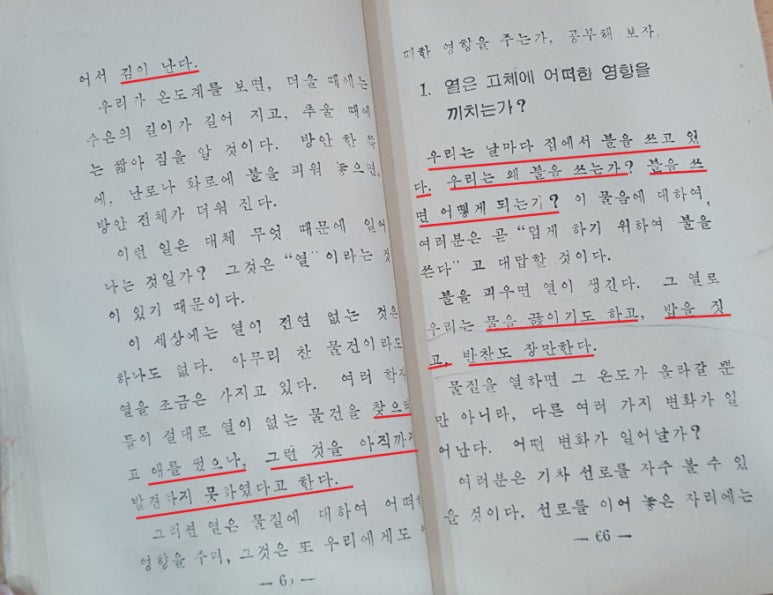 어서 김이 난다.
우리가 온도계를 보면, 더울 때에는
수은의 길이가 길어 지고, 추울 때에
는 짧아 짐을 알 것이다. 방안 한 쪽
에, 난로나 화로에 불을 피워 놓으면,
방안 전체가 더워 진다.
이런 일은 대체 무엇 때문에 일어
나는 것일가? 그것은 “열”이라는 것
이 있기 때문이다.
이 세상에는 열이 전연 없는 것은
하나도 없다. 아무리 찬 물건이라도
열을 조금은 가지고 있다. 여러 학자
들이 절대로 열이 없는 물건을 찾으려
고 애를 썼으나, 그런 것을 아직까지
발견하지 못하였다고 한다.
그러면 열은 물질에 대하여 어떠한
영향을 주며, 그것은 또 우리에게도
— 6
떠한 영향을 주는가, 공부해 보자.
1. 열은 고체에 어떠한 영향을
끼치는가?
우리는 날마다 집에서 불을 쓰고 있
다. 우리는 왜 불을 쓰는가? 불을 쓰
면 어떻게 되는가? 이 물음에 대하여,
여러분은 곧 “덥게 하기 위하여 불을
쓴다” 고 대답할 것이다.
불을 피우면 열이 생긴다. 그 열로
우리는 물을 끓이기도 하고, 밥을 짓
고, 반찬도 장만한다.
물질을 열하면 그 온도가 올라갈 뿐
만 아니라, 다른 여러 가지 변화가 일
어난다. 어떤 변화가 일어날가?
여러분은 기차 선로를 자주 볼 수 있
을 것이다. 선로를 이어 놓은 자리에는
— 66 —